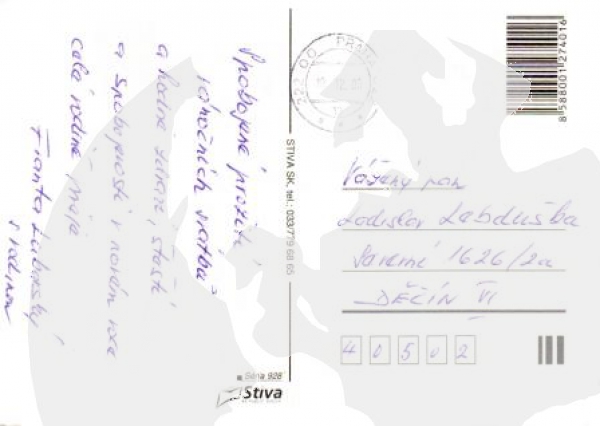 Spokojené prožití
vánočních svátků
a hodně zdraví, štěstí
a spokojenosti v novém roce
celé rodině, přeje
Franta
s rodinou
STIVA SK, tel.: 033/779 68 65
Séria 928
Stiva
222 00 PRAHA
8 588001 274016
Vážený pan
Ladislav Labduška
1626/2a
DĚČÍN VI
40502